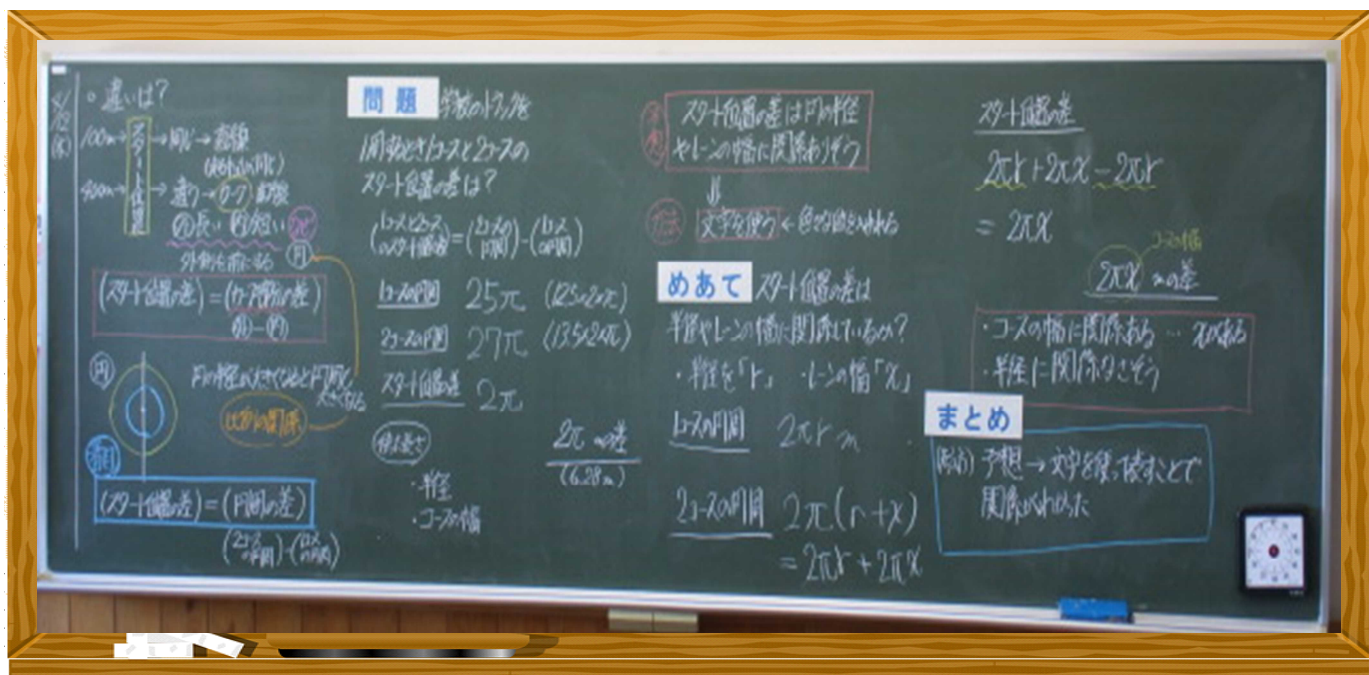 違いは?
100m→ →同じ→直線
400m→ →違う→カーブ 直線
スタート位置
外長い 内短い
外側を前にする 円
(スタート位置の差)=(カーブ部分の差)
円
円の半径が大きくなると円周も
大きくなる
比例の関係
(スタート位置の差)=(円周の差)
(2コースの円周)-(1コースの円周)
問題 学校のトラックを
1周するとき1コースと2コースの
スタート位置の差は?
(1コースと2コースのスタート位置の差)=(2コースの円周)-(1コースの円周)
1コースの円周 25π (12.5×2×π)
2コースの円周 27π (13.5×2×π)
スタート位置の差 2π
2π mの差
(6.28m)
・半径
・コースの幅
予想
スタート位置の差は円の半径
やレーンの幅に関係ありそう
⇓
方法 文字を使う ←色々な値を入れれる
めあて スタート位置の差は
半径やレーンの幅に関係しているか?
・半径を「r」 ・レーンの幅「x」
1コースの円周 2πr m
2コースの円周 2π(r+x)
=2πr+2πx
スタート位置の差
2πr+2πx-2πr
=2πx
コースの幅
2πx mの差
・コースの幅に関係ある … xがある
・半径に関係なさそう
まとめ
予想→文字を使って表すことで
関係がわかった